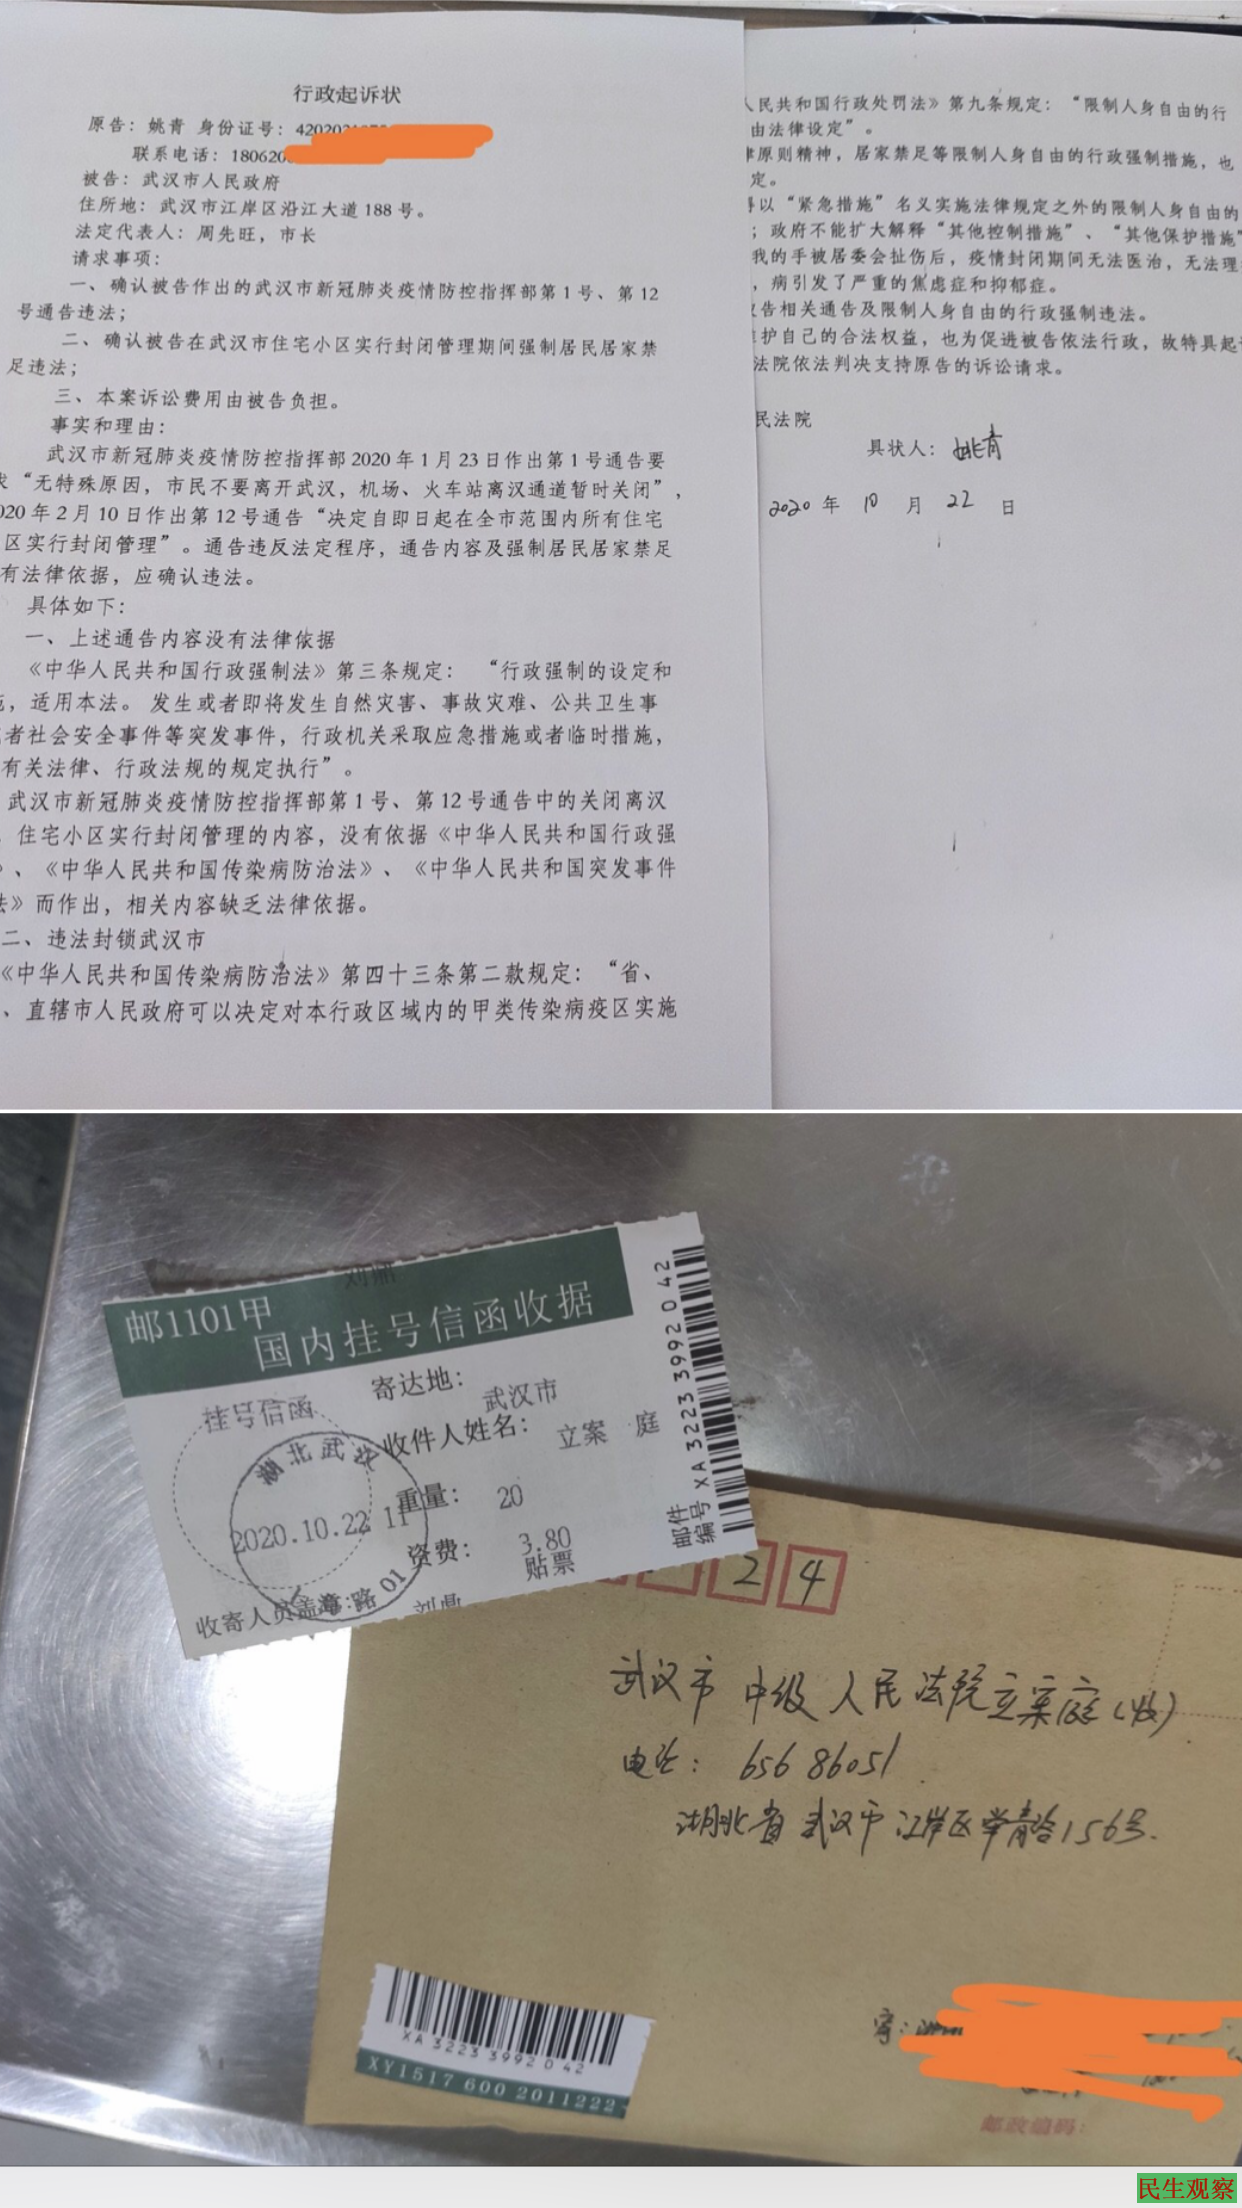 行政起诉状
原告：姚青 身份证号：420202
联系电话：180620
被告：武汉市人民政府
住所地：武汉市江岸区沿江大道188号。
法定代表人：周先旺，市长
请求事项：
一、确认被告作出的武汉市新冠肺炎疫情防控指挥部第1号、第12
号通告违法；
二、确认被告在武汉市住宅小区实行封闭管理期间强制居民居家禁
足违法；
三、本案诉讼费用由被告负担。
事实和理由：
武汉市新冠肺炎疫情防控指挥部2020年1月23日作出第1号通告要
求“无特殊原因，市民不要离开武汉，机场、火车站离汉通道暂时关闭”，
020年2月10日作出第12号通告“决定自即日起在全市范围内所有住宅
区实行封闭管理”。通告违反法定程序，通告内容及强制居民居家禁足
有法律依据，应确认违法。
具体如下：
一、上述通告内容没有法律依据
《中华人民共和国行政强制法》第三条规定： “行政强制的设定和
，适用本法。 发生或者即将发生自然灾害、事故灾难、公共卫生事
或者社会安全事件等突发事件，行政机关采取应急措施或者临时措施，
有关法律、行政法规的规定执行”。
武汉市新冠肺炎疫情防控指挥部第1号、第12号通告中的关闭离汉
、住宅小区实行封闭管理的内容，没有依据《中华人民共和国行政强
》、《中华人民共和国传染病防治法》、《中华人民共和国突发事件
法》而作出，相关内容缺乏法律依据。
二、违法封锁武汉市
《中华人民共和国传染病防治法》第四十三条第二款规定：“省、
、直辖市人民政府可以决定对本行政区域内的甲类传染病疫区实施
人民共和国行政处罚法》第九条规定：“限制人身自由的行
由法律设定”。
律原则精神，居家禁足等限制人身自由的行政强制措施，也
定。
得以“紧急措施”名义实施法律规定之外的限制人身自由的
；政府不能扩大解释“其他控制措施”、“其他保护措施”
我的手被居委会扯伤后，疫情封闭期间无法医治，无法理
，病引发了严重的焦虑症和抑郁症。
被告相关通告及限制人身自由的行政强制违法。
维护自己的合法权益，也为促进被告依法行政，故特具起
法院依法判决支持原告的诉讼请求。
民法院
具状人：姚青
2020 年 10 月 22 日
邮1101甲
国内挂号信函收据
挂号信函
寄达地：武汉市
收件人姓名：立案 庭
重量：20
资费：3.80
贴票
收寄人员盖章：刘鼎
湖北武汉
2020.10.22 11
路 01
邮件
编号 XA 3223 3992 0 42
刘鼎
2 4
武汉市 中级人民法院立案庭（收）
电话：656 86051
湖北省武汉市江岸区 156号.
寄：
XA 3223 3992 0 42
XY1517 600 2011222
邮政编码：
民生观察